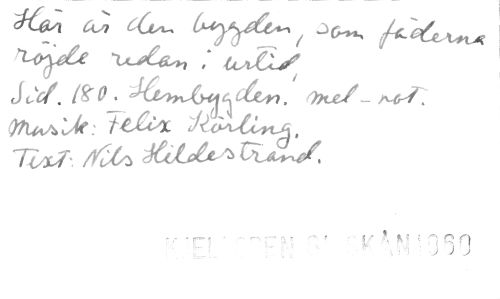 Här är den bygden, som fäderna
röjde redan i urtid,
Sid. 180. Hembygden. mel-not.
Musik: Felix Körling.
Text: Nils Hildestrand.
SKÅN 1969